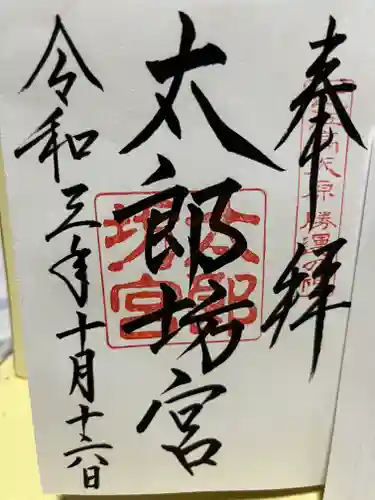 奉拝
太郎坊宮
令和三年十月十六日
太郎坊宮